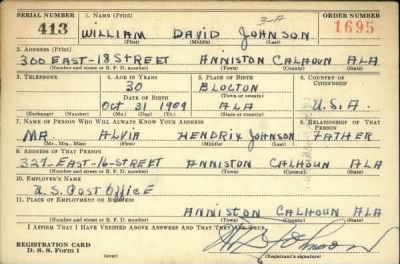 SERIAL NUMBER 1. NAME (Print) 3-A ORDER NUMBER
413 WILLIAM DAVID JOHNSON 1695
(First) (Middle) (Last)
2. ADDRESS (Print)
300 EAST-18 STREET ANNISTON CALHOUN ALA
(Number and street or R. F. D. number) (Town) (County) (State)
3. TELEPHONE 4. AGE IN YEARS 5. PLACE OF BIRTH 6. COUNTRY OF CITIZENSHIP
30 BLOCTON
DATE OF BIRTH (Town or county)
OCT 31 1909 ALA U.S.A.
(Exchange) (Number) (Mo.) (Day) (Yr.) (State or country)
7. NAME OF PERSON WHO WILL ALWAYS KNOW YOUR ADDRESS 8. RELATIONSHIP OF THAT PERSON
MR. ALVIA HENDRIX JOHNSON FATHER
(Mr., Mrs., Miss) (First) (Middle) (Last)
9. ADDRESS OF THAT PERSON
327-EAST-16-STREET ANNISTON CALHOUN ALA
(Number and street or R. F. D. number) (Town) (County) (State)
10. EMPLOYER'S NAME
U.S. POST OFFICE
11. PLACE OF EMPLOYMENT OR BUSINESS
ANNISTON CALHOUN ALA
(Number and street or R. F. D. number) (Town) (County) (State)
I AFFIRM THAT I HAVE VERIFIED ABOVE ANSWERS AND THAT THEY ARE TRUE.
REGISTRATION CARD
D. S. S. Form 1 (over) (Registrant's signature)